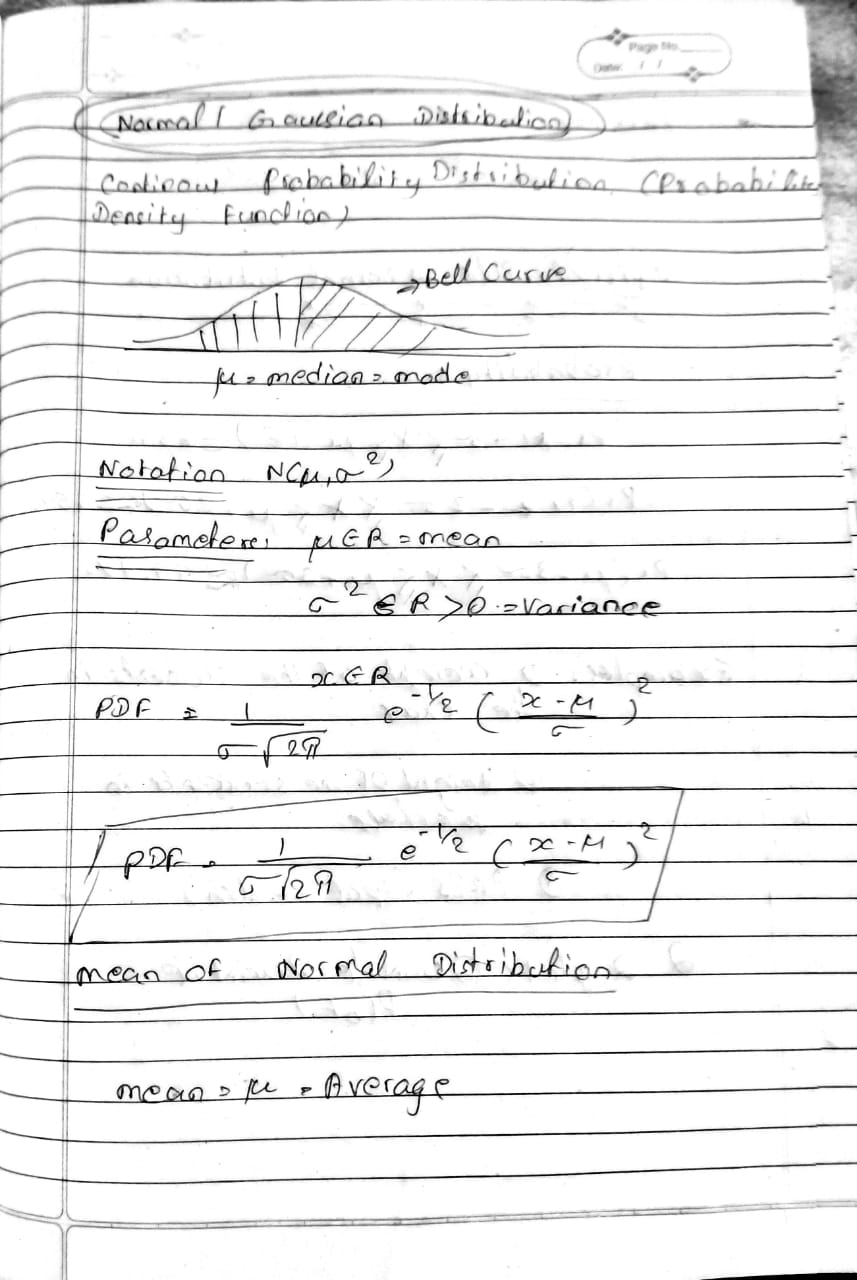 Page No.
Date: / /
Normal / Gaussian Distribution
Continous Probability Distribution (Probability
Density Function)
→Bell Curve
μ = median = mode
Notation N(μ, σ²)
Parameters μ∈R = mean
σ² ∈ R >0 = variance
x∈R
PDF = 1/σ√2π e^-1/2 (x-μ/σ)²
PDF = 1/σ√2π e^-1/2 (x-μ/σ)²
mean of Normal Distribution
mean = μ = Average